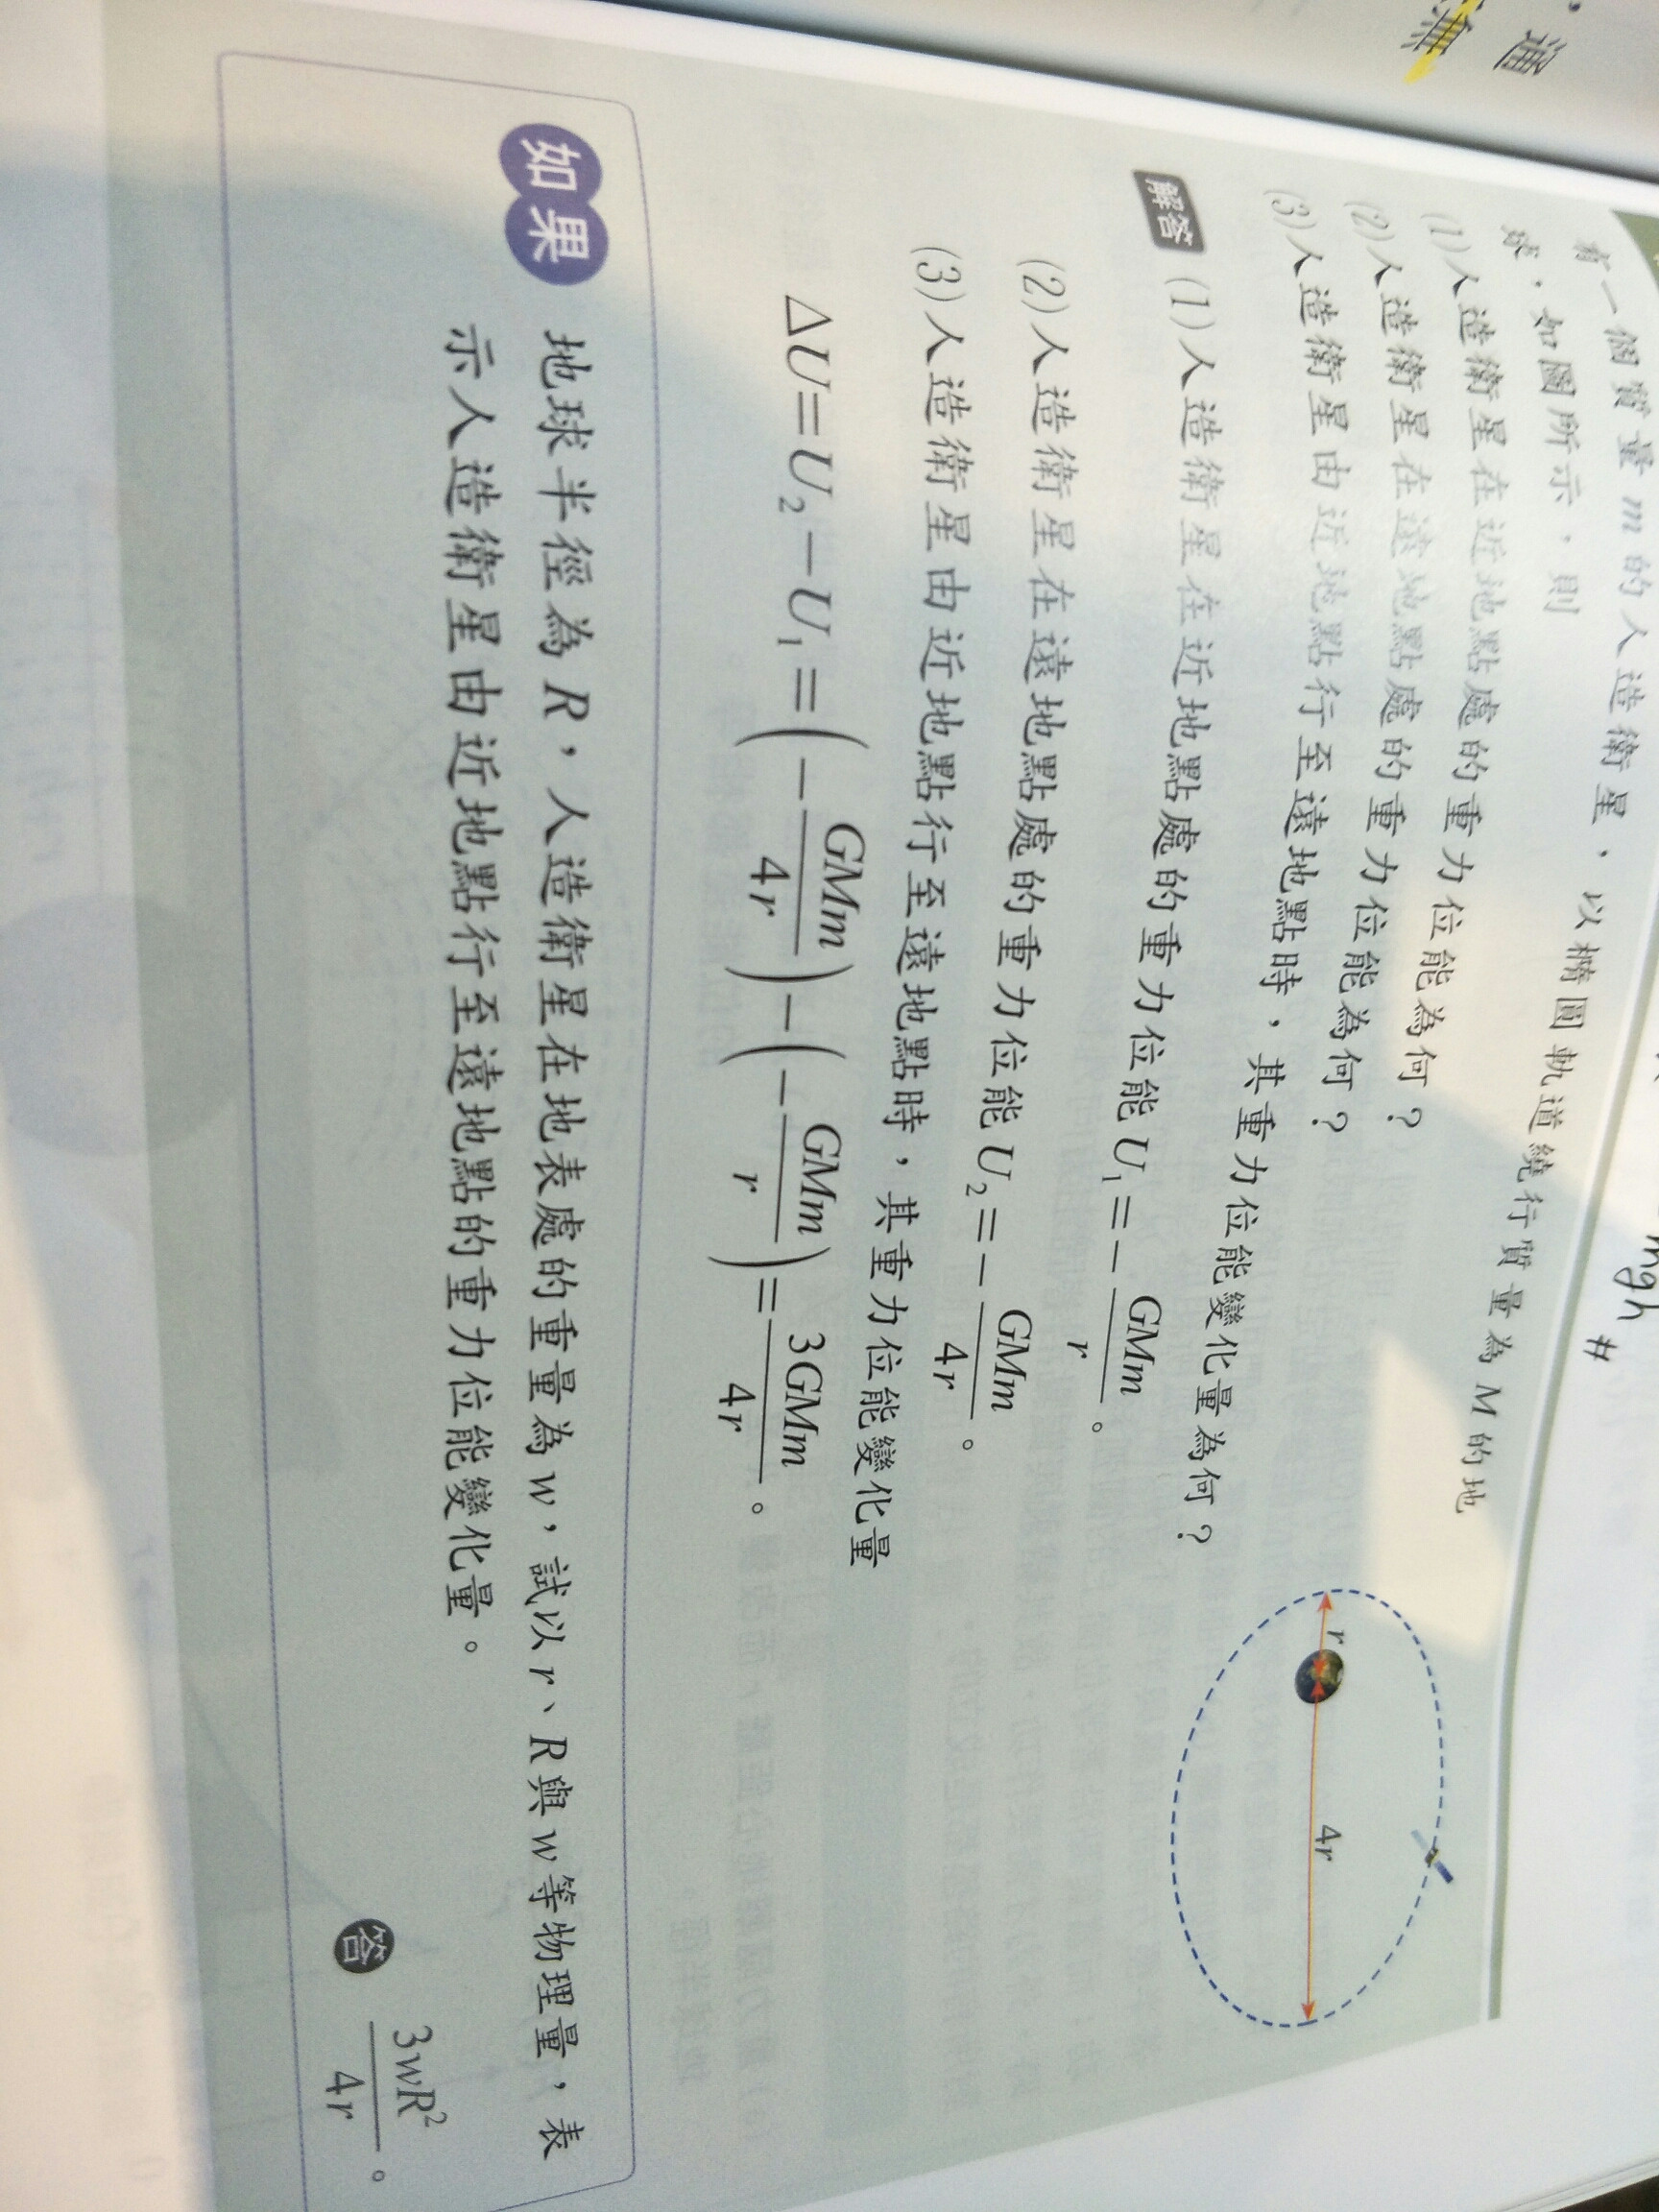 ，週
無
mgh #
有一個質量 m 的人造衛星，以橢圓軌道繞行質量為 M 的地
球，如圖所示，則
(1)人造衛星在近地點處的重力位能為何？
(2)人造衛星在遠地點處的重力位能為何？
(3)人造衛星由近地點行至遠地點時，其重力位能變化量為何？
r
4r
解答 (1)人造衛星在近地點處的重力位能 U₁=－GMm/r。
(2)人造衛星在遠地點處的重力位能 U₂=－GMm/4r。
(3)人造衛星由近地點行至遠地點時，其重力位能變化量
ΔU=U₂－U₁=(－GMm/4r)－(－GMm/r)=3GMm/4r。
如果 地球半徑為 R，人造衛星在地表處的重量為 w，試以 r、R 與 w 等物理量，表
示人造衛星由近地點行至遠地點的重力位能變化量。
答 3wR²/4r。